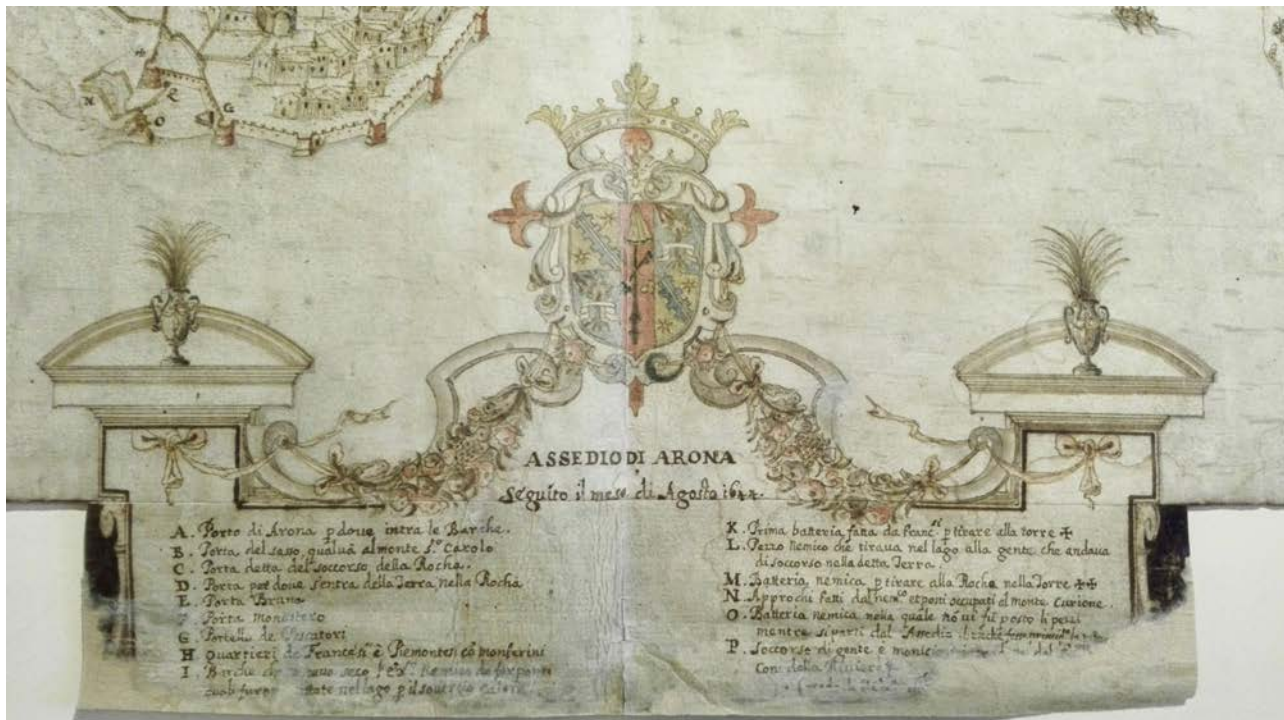 N
R
O
G
ASSEDIO DI ARONA
Seguito il mese di Agosto 1644.
A. Porto di Arona p doue intra le Barche.
B. Porta del sasso qual uà al monte S.to Carolo
C. Porta detta del soccorso della Rocha.
D. Porta per doue s'entra della Terra, nella Rocha
E. Porta Bruna
Porta monastero
G. Portello de Pescatori
H. Quartieri de Francesi è Piemontesi cò monferini
I. Barche
nel lago p il
K. Prima batteria fatta da Franc.si p tirare alla torre ✠
L. Pezzo nemico che tiraua nel lago alla gente che andaua
di soccorso nella detta Terra.
M. Batteria nemica p tirare alla Rocha nella Torre ✠✠
N. Approchi fatti dal nem.co et posti occupati al monte Curione.
O. Batteria nemica nella quale nò ui fù posto li pezzi
mentre si parti dal Assedio
P. Soccorso di gente e
della Riuiera